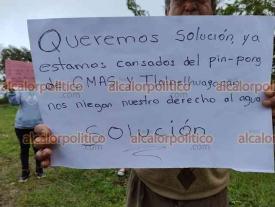 Queremos Solución, ya
estamos cansados del pin-pong
de CMAS y Tlalnelhuayocan
nos niegan nuestro derecho al agua
Solución
alcalorpolitico.com
alcalorpolitico.com
alcalorpolitico.com